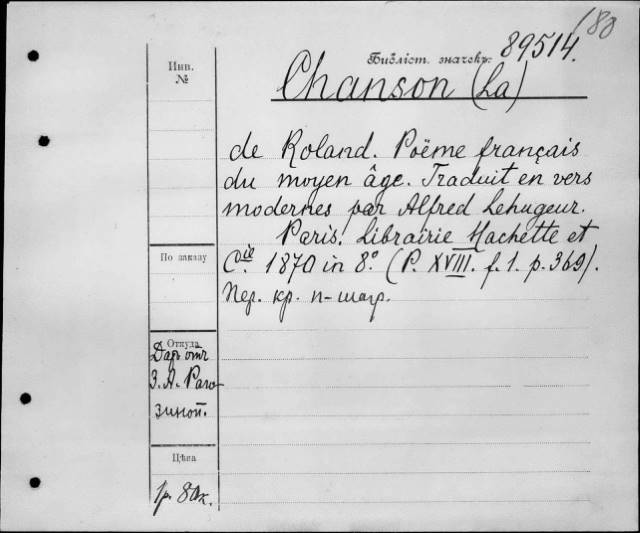 180
Библіот. значекъ: 89514.
Инв.
№
Chanson (La)
de Roland. Poëme français
du moyen âge. Traduit en vers
modernes par Alfred Lehugeur.
Paris. Librairie Hachette et
Cie. 1870 in 8.° (P. XVIII. f. 1. p. 369).
Пер. кр. п-шагр.
По заказу
Откуда
Даръ отъ
З. А. Раго-
зиной.
Цѣна
1р. 80к.